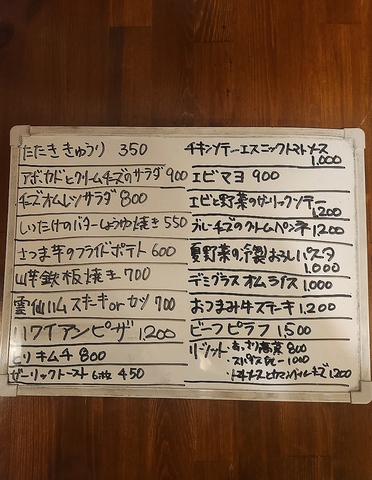 たたききゅうり 350
アボカドとクリームチーズのサラダ 900
チーズオムレツサラダ 800
しいたけのバターしょうゆ焼き 550
さつま芋のフライドポテト 600
山芋鉄板焼き 700
雲仙ハムステーキorカツ 700
ハワイアンピザ 1,200
とりキムチ 800
ガーリックトースト 6枚 450
チキンソテーエスニックトマトソース
1,000
エビマヨ 900
エビと野菜のガーリックソテー
1,200
ブルーチーズのクリームペンネ 1,200
夏野菜の冷製おろしパスタ
1,000
デミグラスオムライス 1,000
おつまみ牛ステーキ 1,200
ビーフピラフ 1,500
リゾット・あっさり高菜 800
・スパイスカレー 1,000
・トマトソースとカマンベールチーズ 1,200